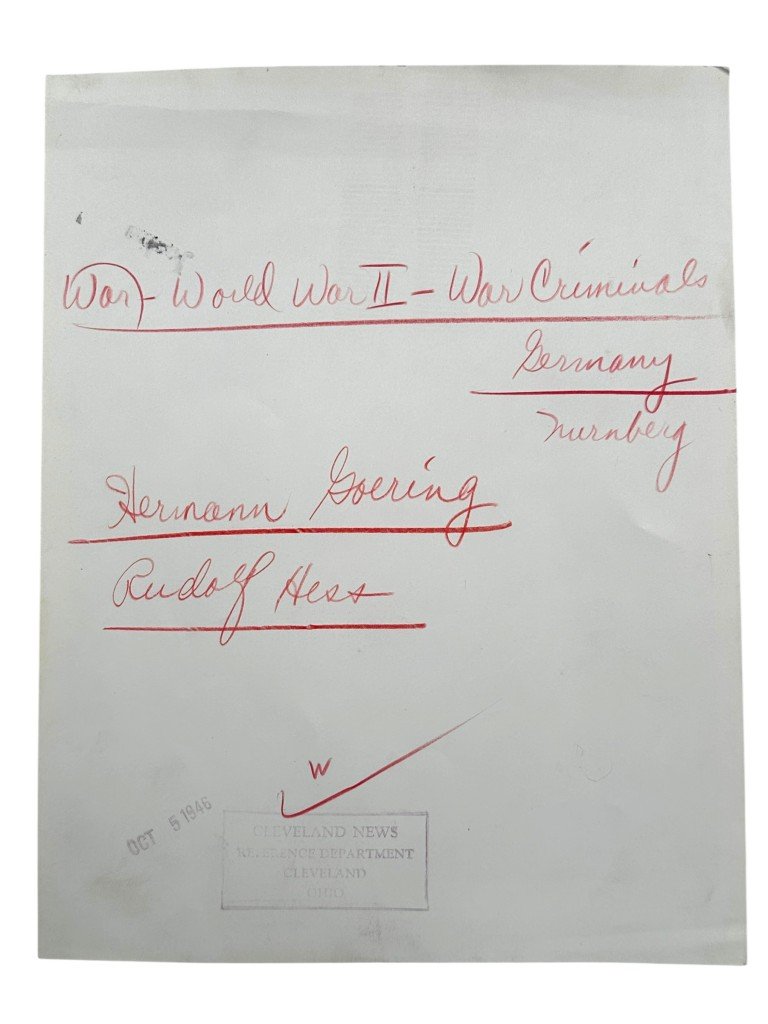 War - World War II - War Criminals
Germany
Nurnberg
Hermann Goering
Rudolf Hess
W
OCT 5 1946
CLEVELAND NEWS
REFERENCE DEPARTMENT
CLEVELAND
OHIO